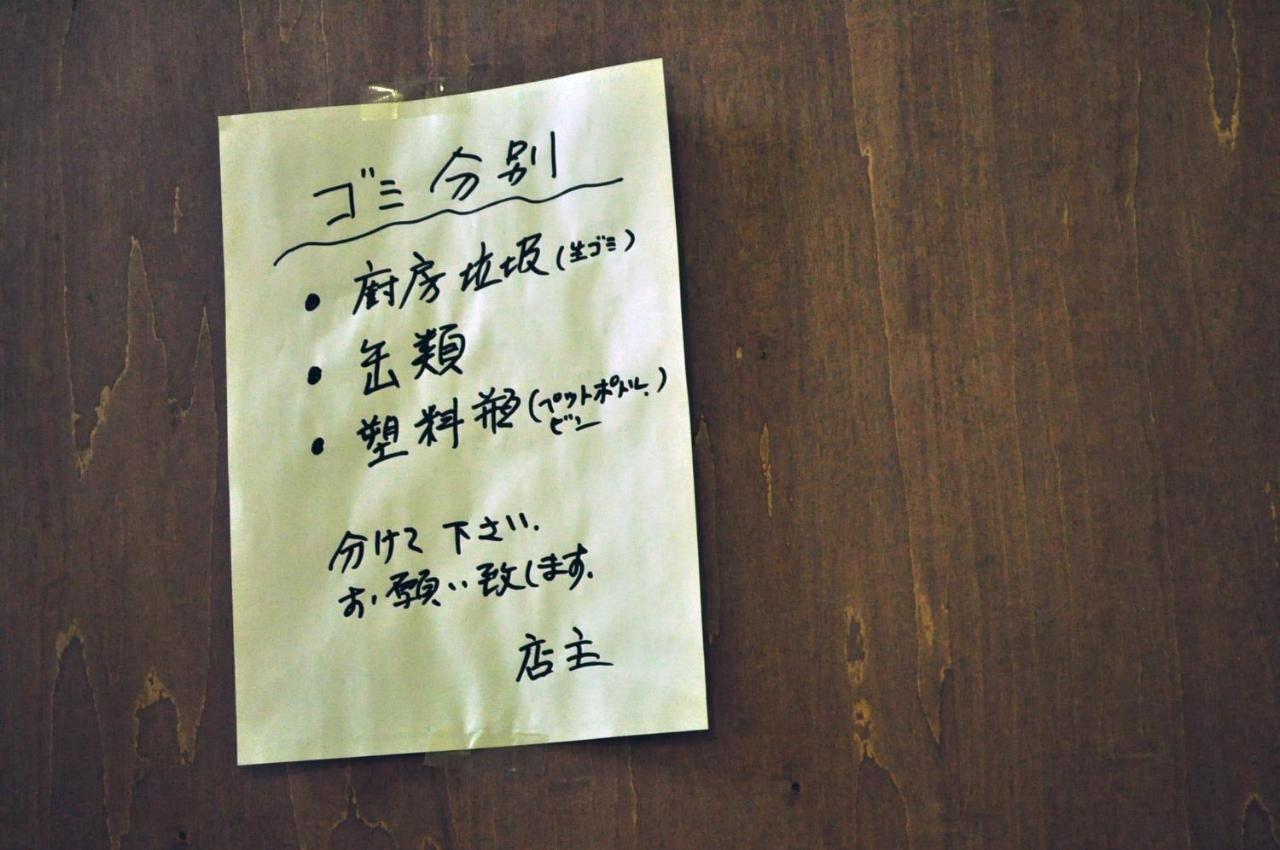 ゴミ分別
• 厨房垃圾(生ゴミ)
• 缶類
• 塑料瓶(ペットボトル.
ビン)
分けて下さい.
お願い致します.
店主